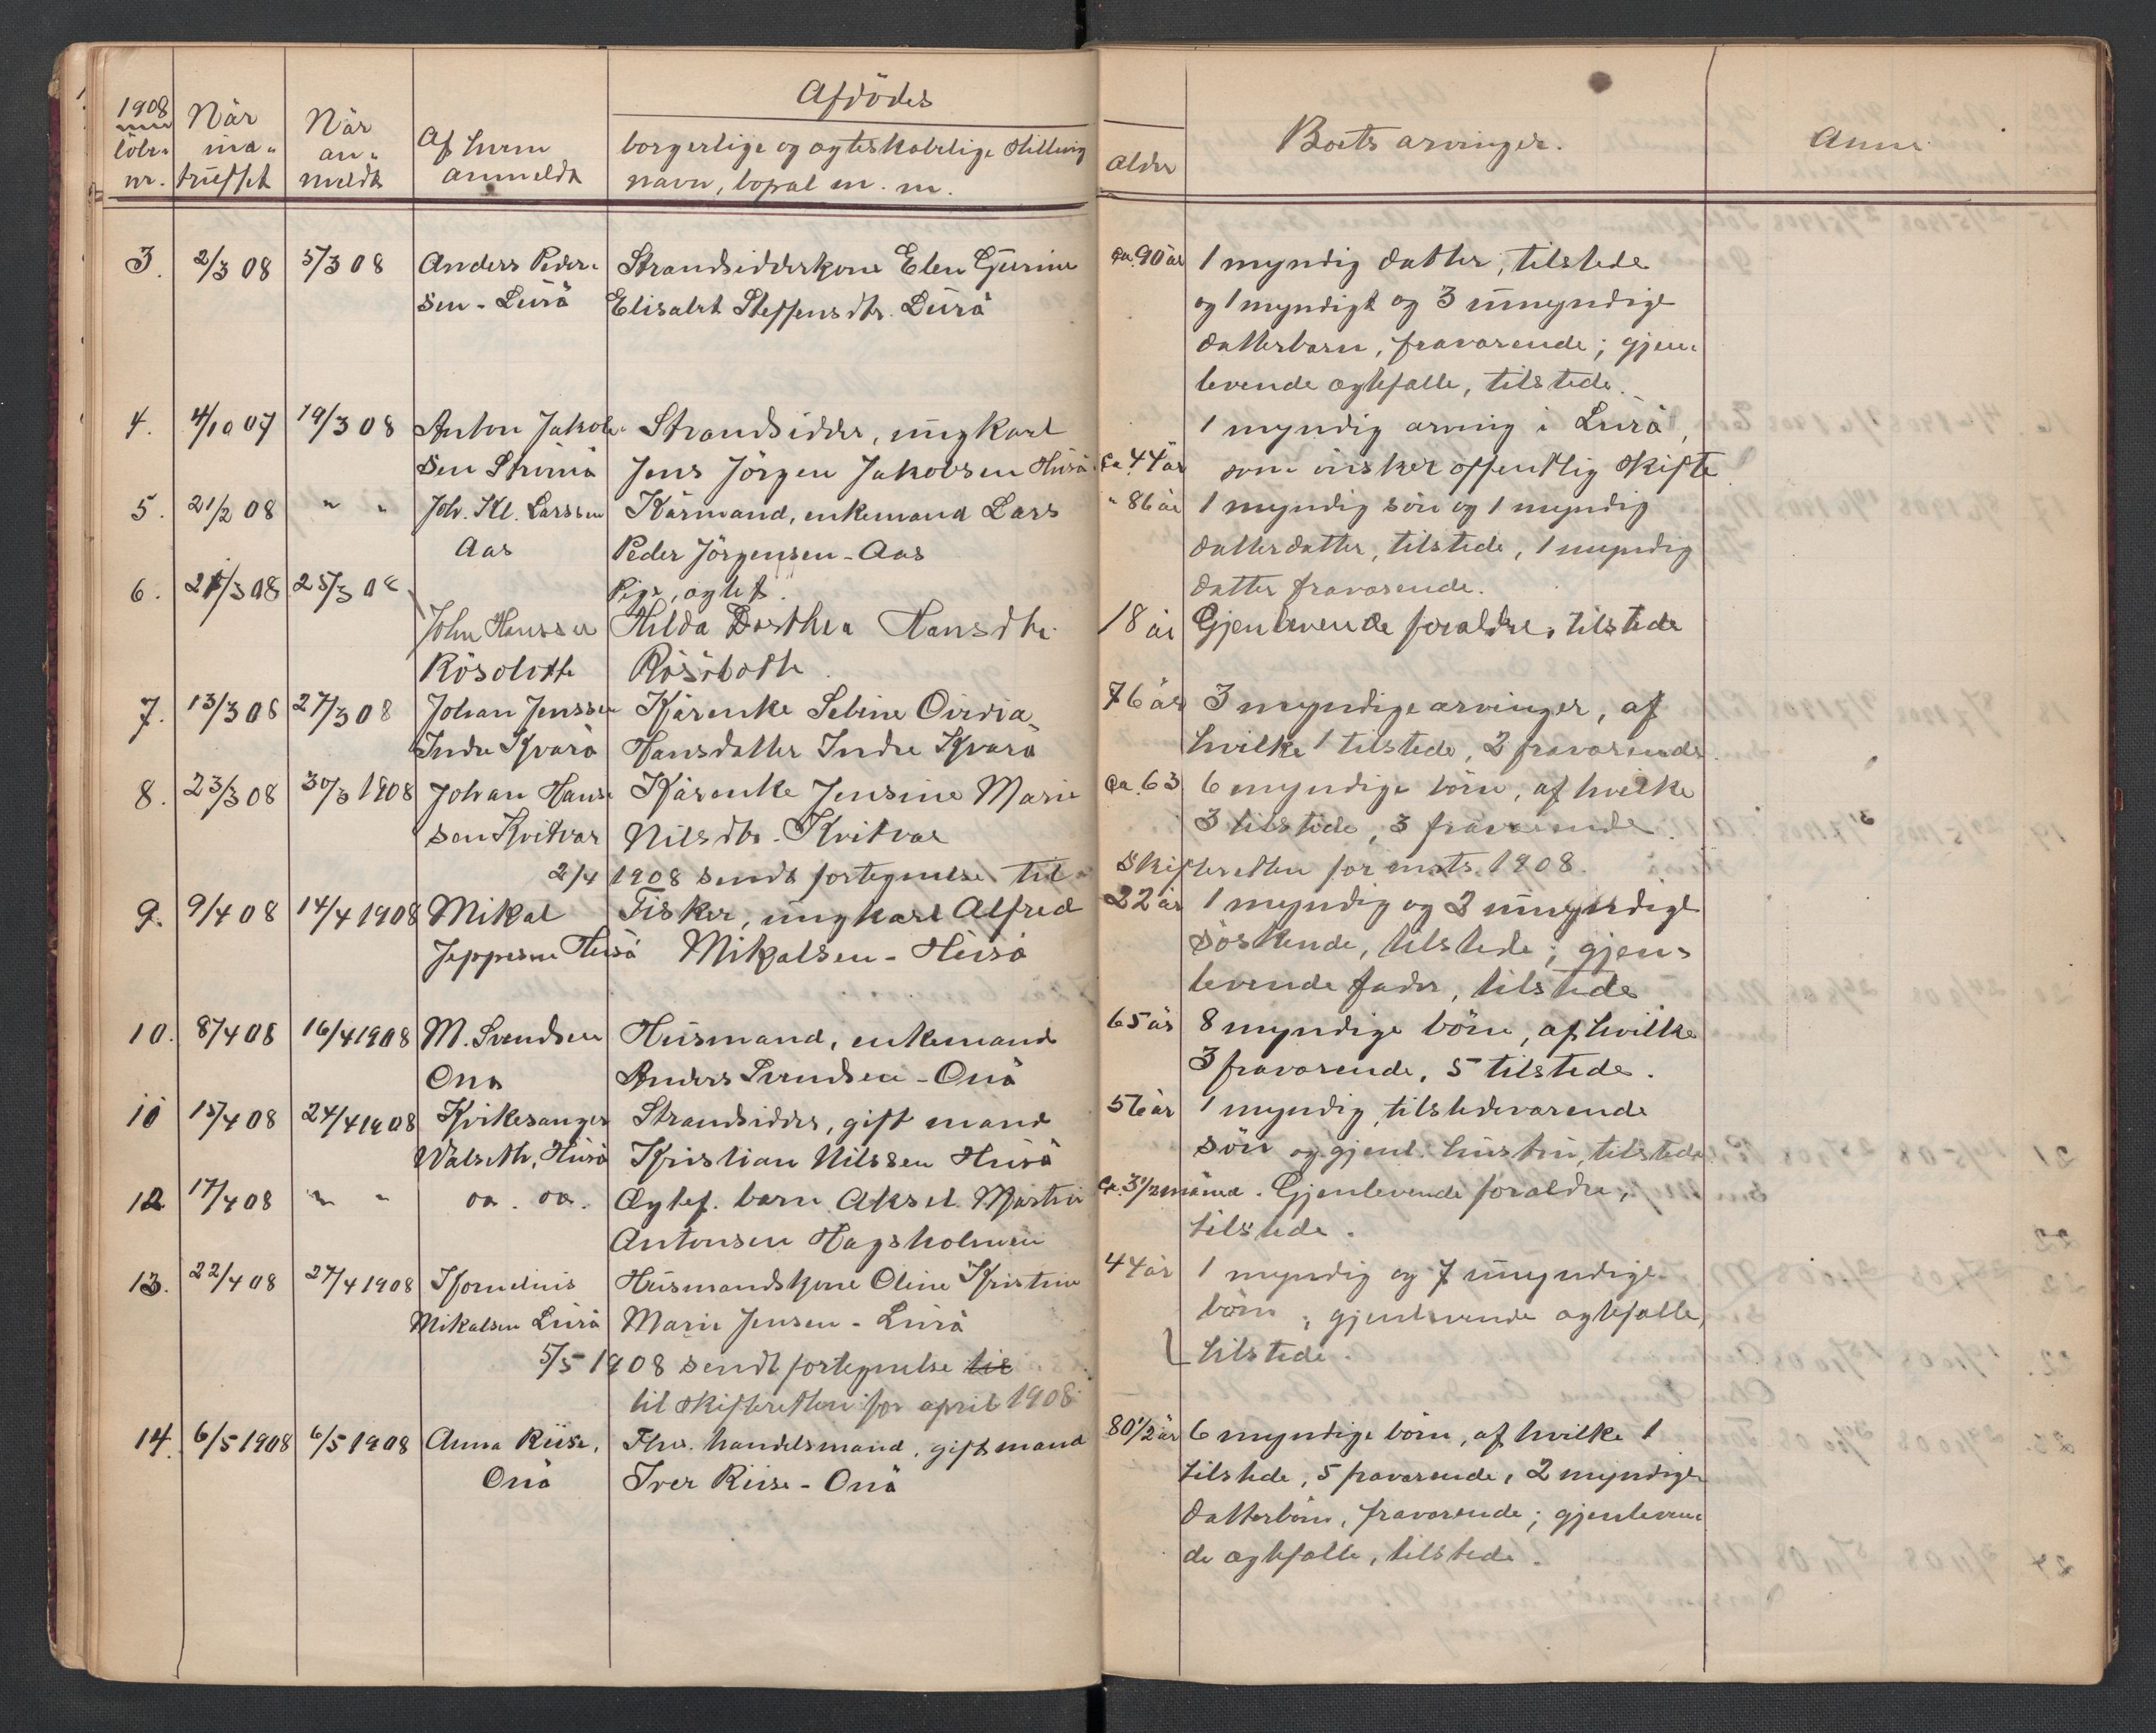 1908 Når När Af hvem Afdödes
löbe- ind- an- anmeldt borgerlige og ægteskabelige stilling
nr. truffet meldt navn, bopæl m. m. Alder Boets arvinger. Anm.
3. 2/3 08 5/3 08 Anders Peder- Strandsidderkone Elen Gurine ca. 90 år 1 myndig datter, tilstede
sen - Lurö Elisabet Steffensdtr. Lurö og 1 myndigt og 3 umyndige
datterbarn, fraværende; gjen-
levende ægtefælle, tilstede.
4. 4/10 07 19/3 08 Anton Jakob- Strandsidder, ungkarl 1 myndig arving i Lurö,
sen Jens Jörgen Jakobsen Husö ca. 44 år som önsker offentlig skifte
5. 21/2 08 " " Joh. Kl. Larssen Kårmand, enkemand Lars " 86 år 1 myndig sön og 1 myndig
Aas Peder Jörgensen - Aas datterdatter, tilstede, 1 myndig
6. 21/3 08 25/3 08 Pige, ægtef. datter fraværende.
John Hanssen Hilda Dorthea Hansdtr. 18 år Gjenlevende forældre, tilstede
Rösöbotn
7. 13/3 08 27/3 08 Johan Jenssen Kårenke Seline Ovidia 76 år 3 myndige arvinger, af
Indre Kvarö Hansdatter Indre Kvarö hvilke 1 tilstede, 2 fraværende.
8. 23/3 08 30/3 1908 Johan Han- Kårenke Jensine Marie ca. 63 6 myndige börn, af hvilke
sen Kvitvær Nilsdtr. Kvitvær 3 tilstede, 3 fraværende.
2/4 1908 sendt fortegnelse til skifteretten for mrts. 1908.
9. 9/4 08 14/4 1908 Mikal Fisker, ungkarl Alfred 22 år 1 myndig og 2 umyndige
Jeppesen Husö Mikalsen - Husö söskende, tilstede; gjen-
levende fader, tilstede
10. 8/4 08 16/4 1908 M. Svendsen Husmand, enkemand 65 år 8 myndige börn, af hvilke
Onö Anders Svendsen - Onö 3 fraværende, 5 tilstede.
11 15/4 08 24/4 1908 Kirkesanger Strandsidder, gift mand 56 år 1 myndig tilstedeværende
Walseth, Husö Kristian Nilssen Husö sön og gjenl. hustru, tilstede
12 17/4 08 " " oa. oa. Ægtef. barn Aksel Martin ca. 3 1/2 måned. Gjenlevende forældre,
Antonsen Hagsholmen tilstede.
13. 22/4 08 27/4 1908 Kornelius Husmandskone Oline Kristine 44 år 1 myndig og 7 umyndige
Mikalsen Lurö Marie Jensen - Lurö börn, gjenlevende ægtefælle,
tilstede.
5/5 1908 sendt fortegnelse til
til skifteretten for april 1908.
14. 6/5 1908 6/5 1908 Anna Riise, Fhv. handelsmand, gift mand 80 1/2 år 6 myndige börn, af hvilke 1
Onö Iver Riise - Onö tilstede, 5 fraværende, 2 myndige
datterbörn, fraværende; gjenleven-
de ægtefælle, tilstede.